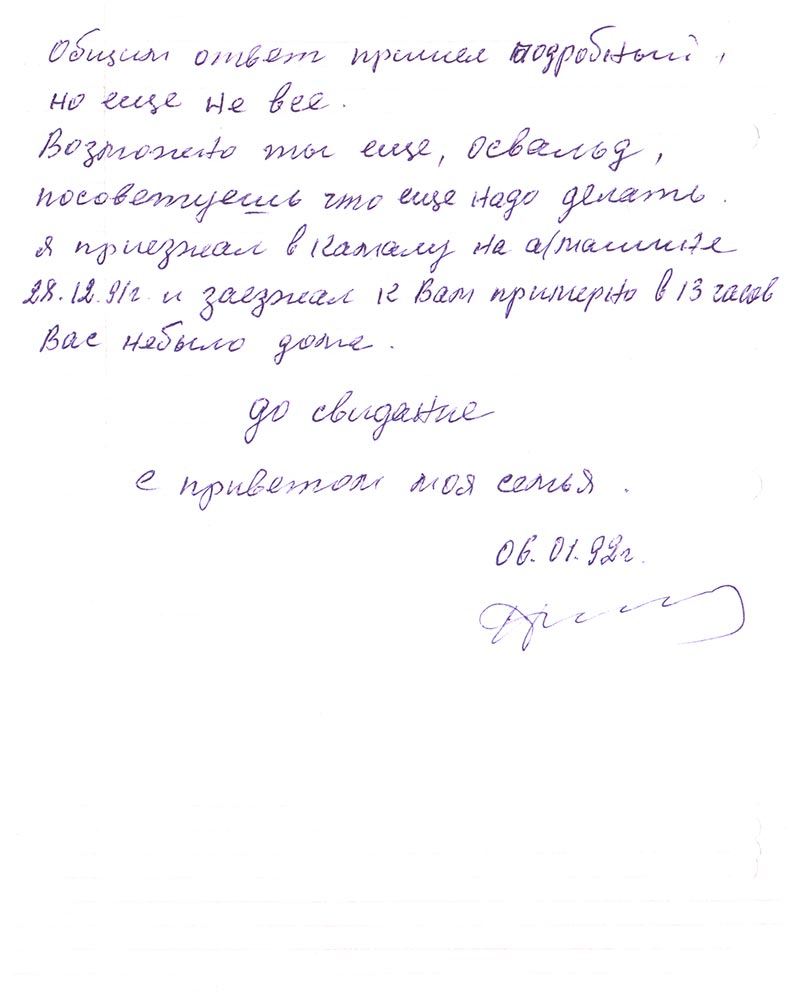 Общим ответ пришел подробный,
но еще не все.
Возможно ты еще, Освальд,
посоветуешь что еще надо делать.
я приезжал в Камалу на а/машине
28.12.91г. и заезжал к Вам примерно в 13 часов
Вас небыло дома.
до свидание
с приветом моя семья.
06.01.92г.